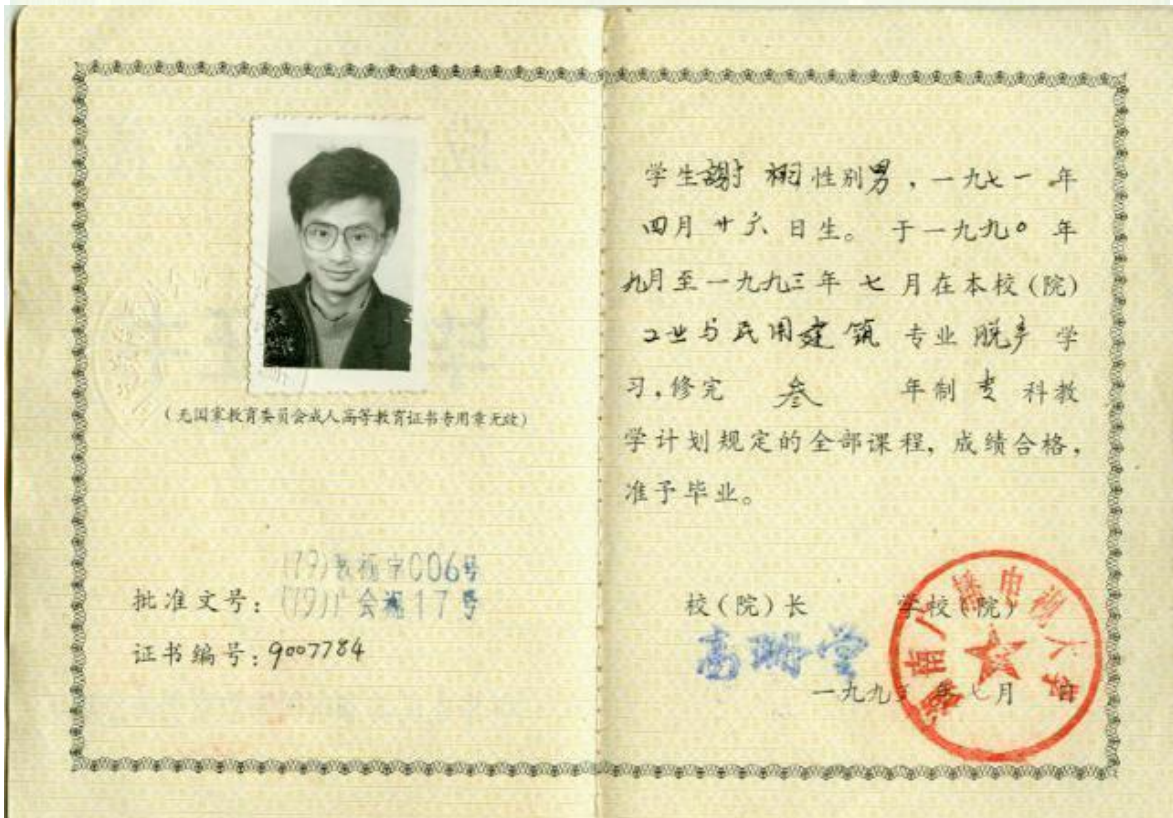 (无国家教育委员会成人高等教育证书专用章无效)
批准文号：
(79)教视字006号
(79)广会视17号
证书编号：9007784
学生謝栩性别男，一九七一年
四月廿六日生。于一九九〇年
九月至一九九三年七月在本校(院)
工业与民用建筑专业脱产学
习，修完 叁 年制专科教
学计划规定的全部课程，成绩合格，
准予毕业。
校(院)长 学校(院)
一九九三年七月 日
广播电视大学